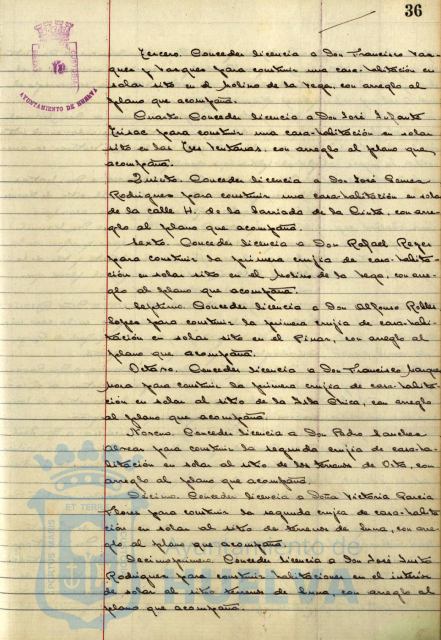 36
AYUNTAMIENTO DE HUELVA
Tercero. Conceder licencia a Don Francisco Vaz-
ques y Vazques para construir una casa-habitación en
solar sito en el Molino de la Vega, con arreglo al
plano que acompaña.
Cuarto. Conceder licencia a Don José Infante
para construir una casa-habitación en solar
sito en las Tres Ventanas, con arreglo al plano que
acompaña.
Quinto. Conceder licencia a Don José Gomez
Rodriguez para construir una casa-habitación en solar
de la calle H. de la barriada de la Cinta, con arre-
glo al plano que acompaña.
Sexto. Conceder licencia a Don Rafael Reyes
para construir la primera crujía de casa-habita-
ción en solar sito en el Molino de la Vega, con arre-
glo al plano que acompaña.
Septimo. Conceder licencia a Don Alfonso Robles
Lopez para construir la primera crujía de casa-habi-
tación en solar sito en el Pinar, con arreglo al
plano que acompaña.
Octavo. Conceder licencia a Don Francisco Marquez
Mora para construir la primera crujía de casa-habita-
ción en solar al sitio de la Isla Chica, con arreglo
al plano que acompaña.
Noveno. Conceder licencia a Don Pedro Sanchez
para construir la segunda crujía de casa-ha-
bitación en solar al sitio de los terrenos de Oita, con
arreglo al plano que acompaña.
Décimo. Conceder licencia a Doña Victoria Garcia
Flores para construir la segunda crujía de casa-habita-
ción en solar al sitio de terrenos de Luna, con arre-
glo al plano que acompaña.
Decimoprimero. Conceder licencia a Don José
Rodriguez para construir habitaciones en el interior
de solar al sitio terrenos de Luna, con arreglo al
plano que acompaña.
Ayuntamiento de
HUELVA